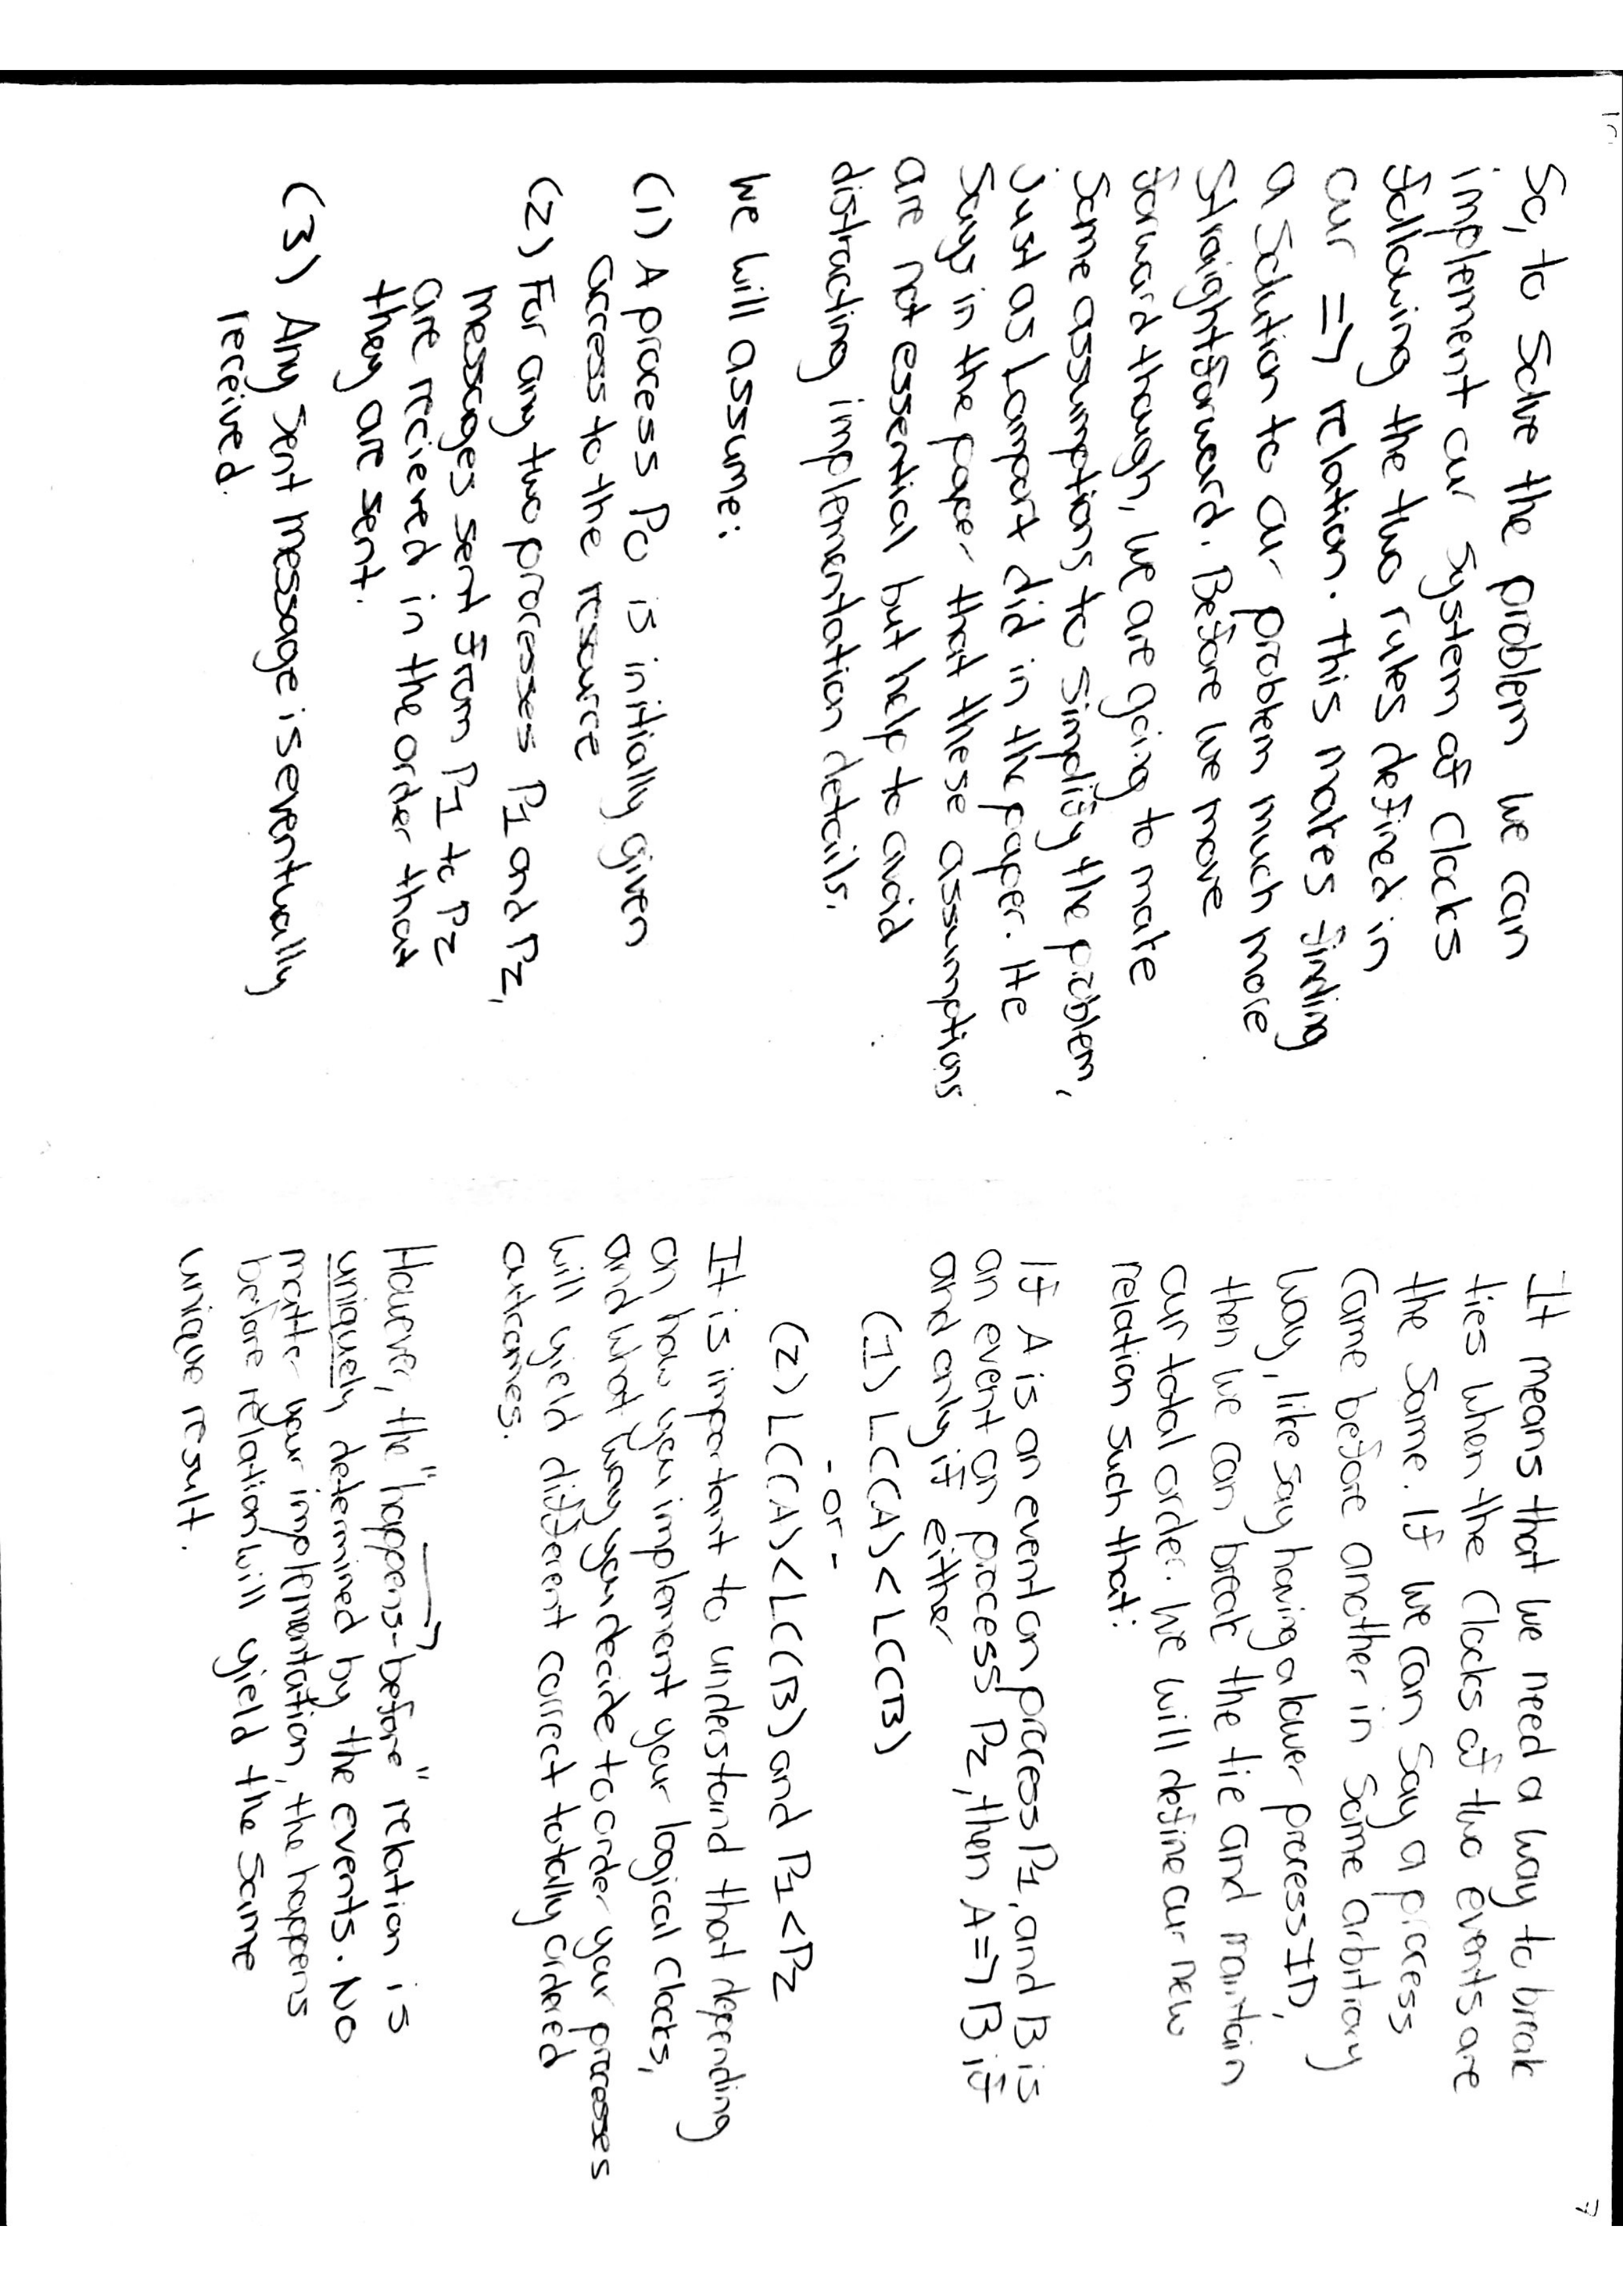 So, to solve the problem we can
implement our system of clocks
following the two rules defined in
our => relation. This makes finding
a solution to our problem much more
straightforward. Before we move
forward though, we are going to make
some assumptions to simplify the problem,
just as Lamport did in the paper. He
says in the paper that these assumptions
are not essential but help to avoid
distracting implementation details.
We will assume:
(1) A process P0 is initially given
access to the resource
(2) For any two processes P1 and P2,
messages sent from P1 to P2
are recieved in the order that
they are sent.
(3) Any sent message is eventually
received.
7
It means that we need a way to break
ties when the clocks of two events are
the same. If we can say a process
came before another in some arbitrary
way, like say having a lower process ID,
then we can break the tie and maintain
our total order. We will define our new
relation such that:
If A is an event on process P1, and B is
an event on process P2, then A => B if
and only if either
(1) LC(A) < LC(B)
- or -
(2) LC(A) < LC(B) and P1 < P2
It is important to understand that depending
on how you implement your logical clocks,
and what way you decide to order your processes
will yield different correct totally ordered
outcomes.
However, the "happens-before" relation is
uniquely determined by the events. No
matter your implementation, the happens
before relation will yield the same
unique result.